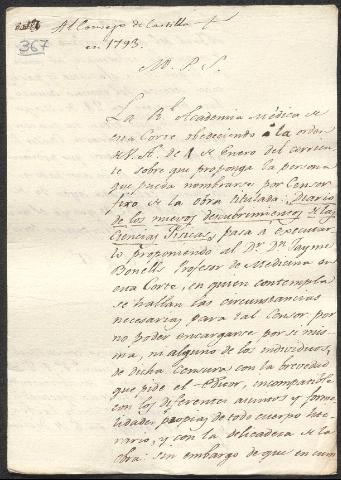 Al Consejo de Castilla
en 1793.
367
M. P. S.
La Rl. Academia Médica de
esta Corte obedeciendo á la orden
de V. A. de 8 de Enero del corrien
te sobre que proponga la persona
que pueda nombrarse por Censor
fixo de la obra titulada: Diario
de los nuevos descubrimientos de las
Ciencias Fisicas, pasa a executar
lo proponiendo al Dr. Dn. Jayme
Bonells Profesor de Medicina en
esta Corte, en quien contempla
se hallan las circunstancias
necesarias para tal Censor por
no poder encargarse por si mis
ma, ni alguno de los individuos,
de dicha Censura con la brevedad
que pide el Editor, incompatible
con los diferentes asuntos y forma
lidades propias de todo cuerpo lite
rario, y con la delicadeza de la
obra: sin embargo de que en cum